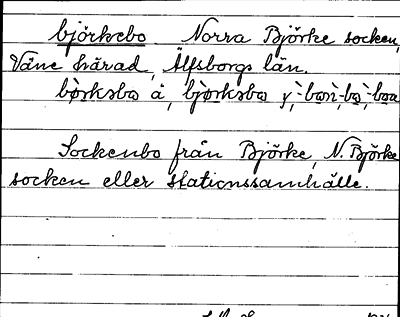 björkebo Norra Björke socken,
Väne härad, Älfsborgs län.
bjørksbo å, bjørksbo y,
Sockenbo från Björke, N. Björke
socken eller stationssamhälle.